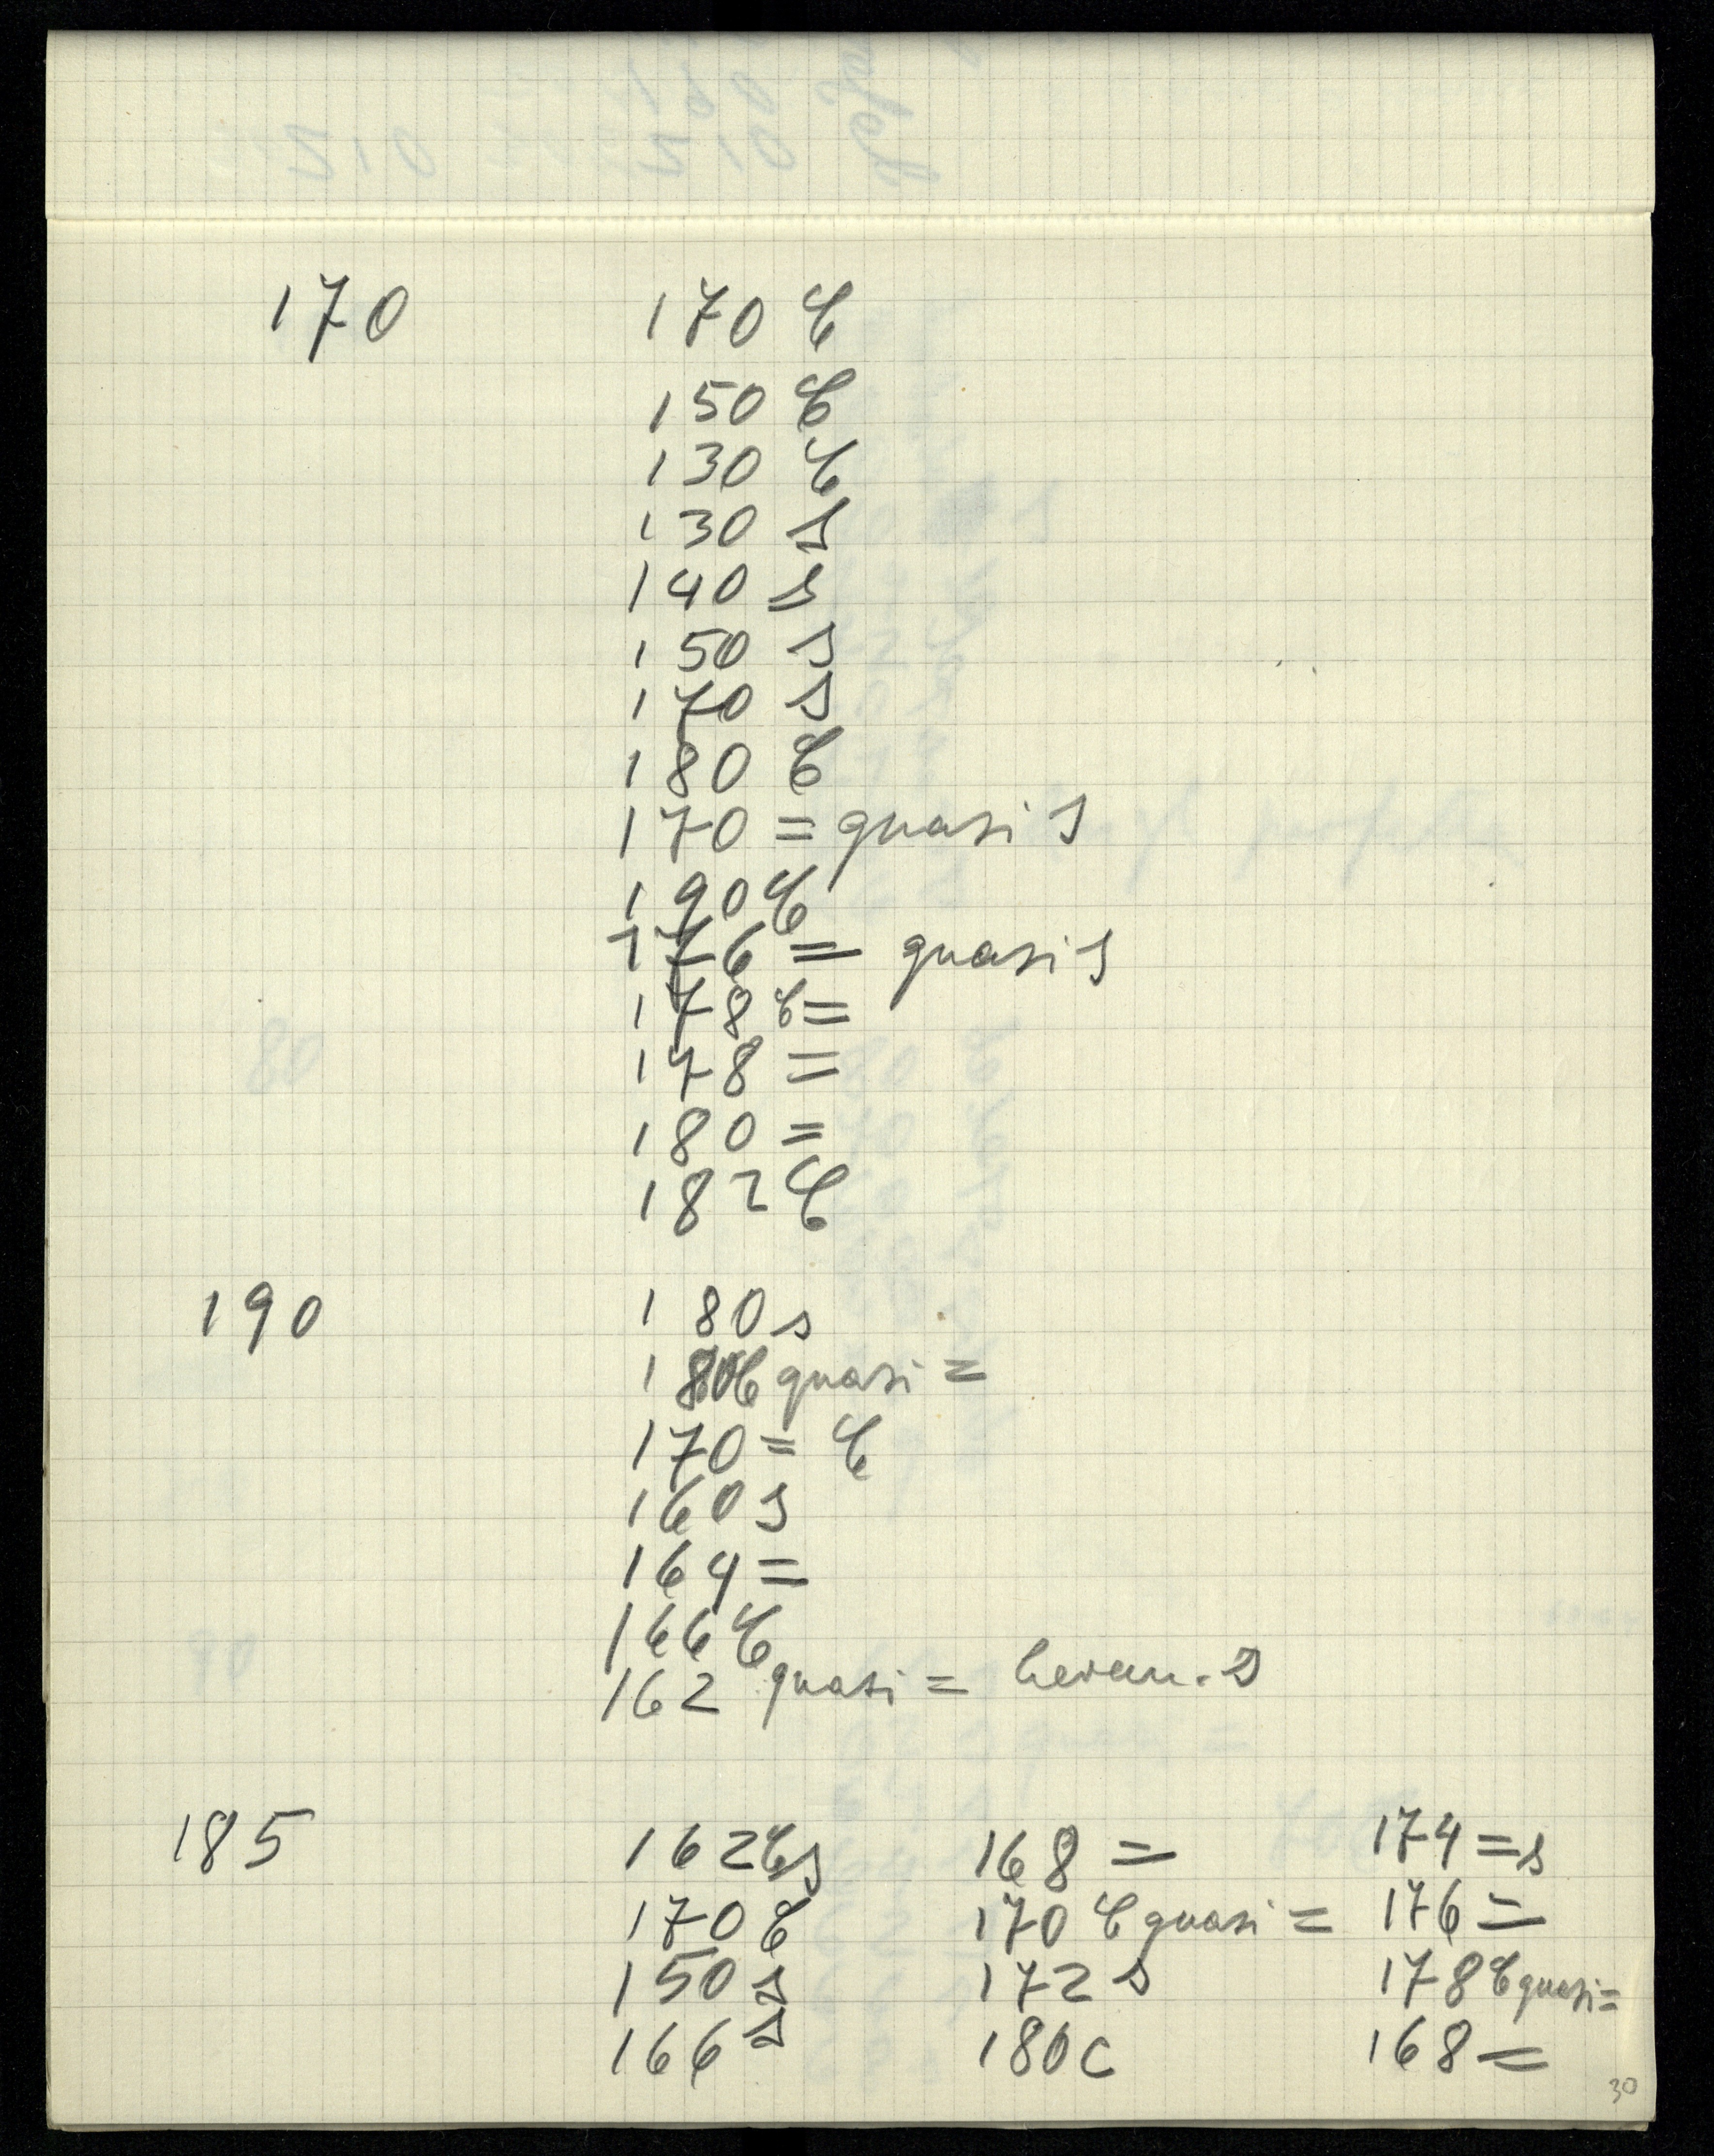 170 170 C
150 C
130 C
130 s
140 s
150 s
170 s
180 C
170 = quasi s
190 C
176 = quasi s
178 C =
178 =
180 =
182 C
190 180 s
180 C quasi =
170 = C
160 s
164 =
166 C
162 quasi =
185 162 C s 168 = 174 = s
170 C 170 C quasi = 176 =
150 s 172 s 178 C quasi =
166 s 180 C 168 =
30